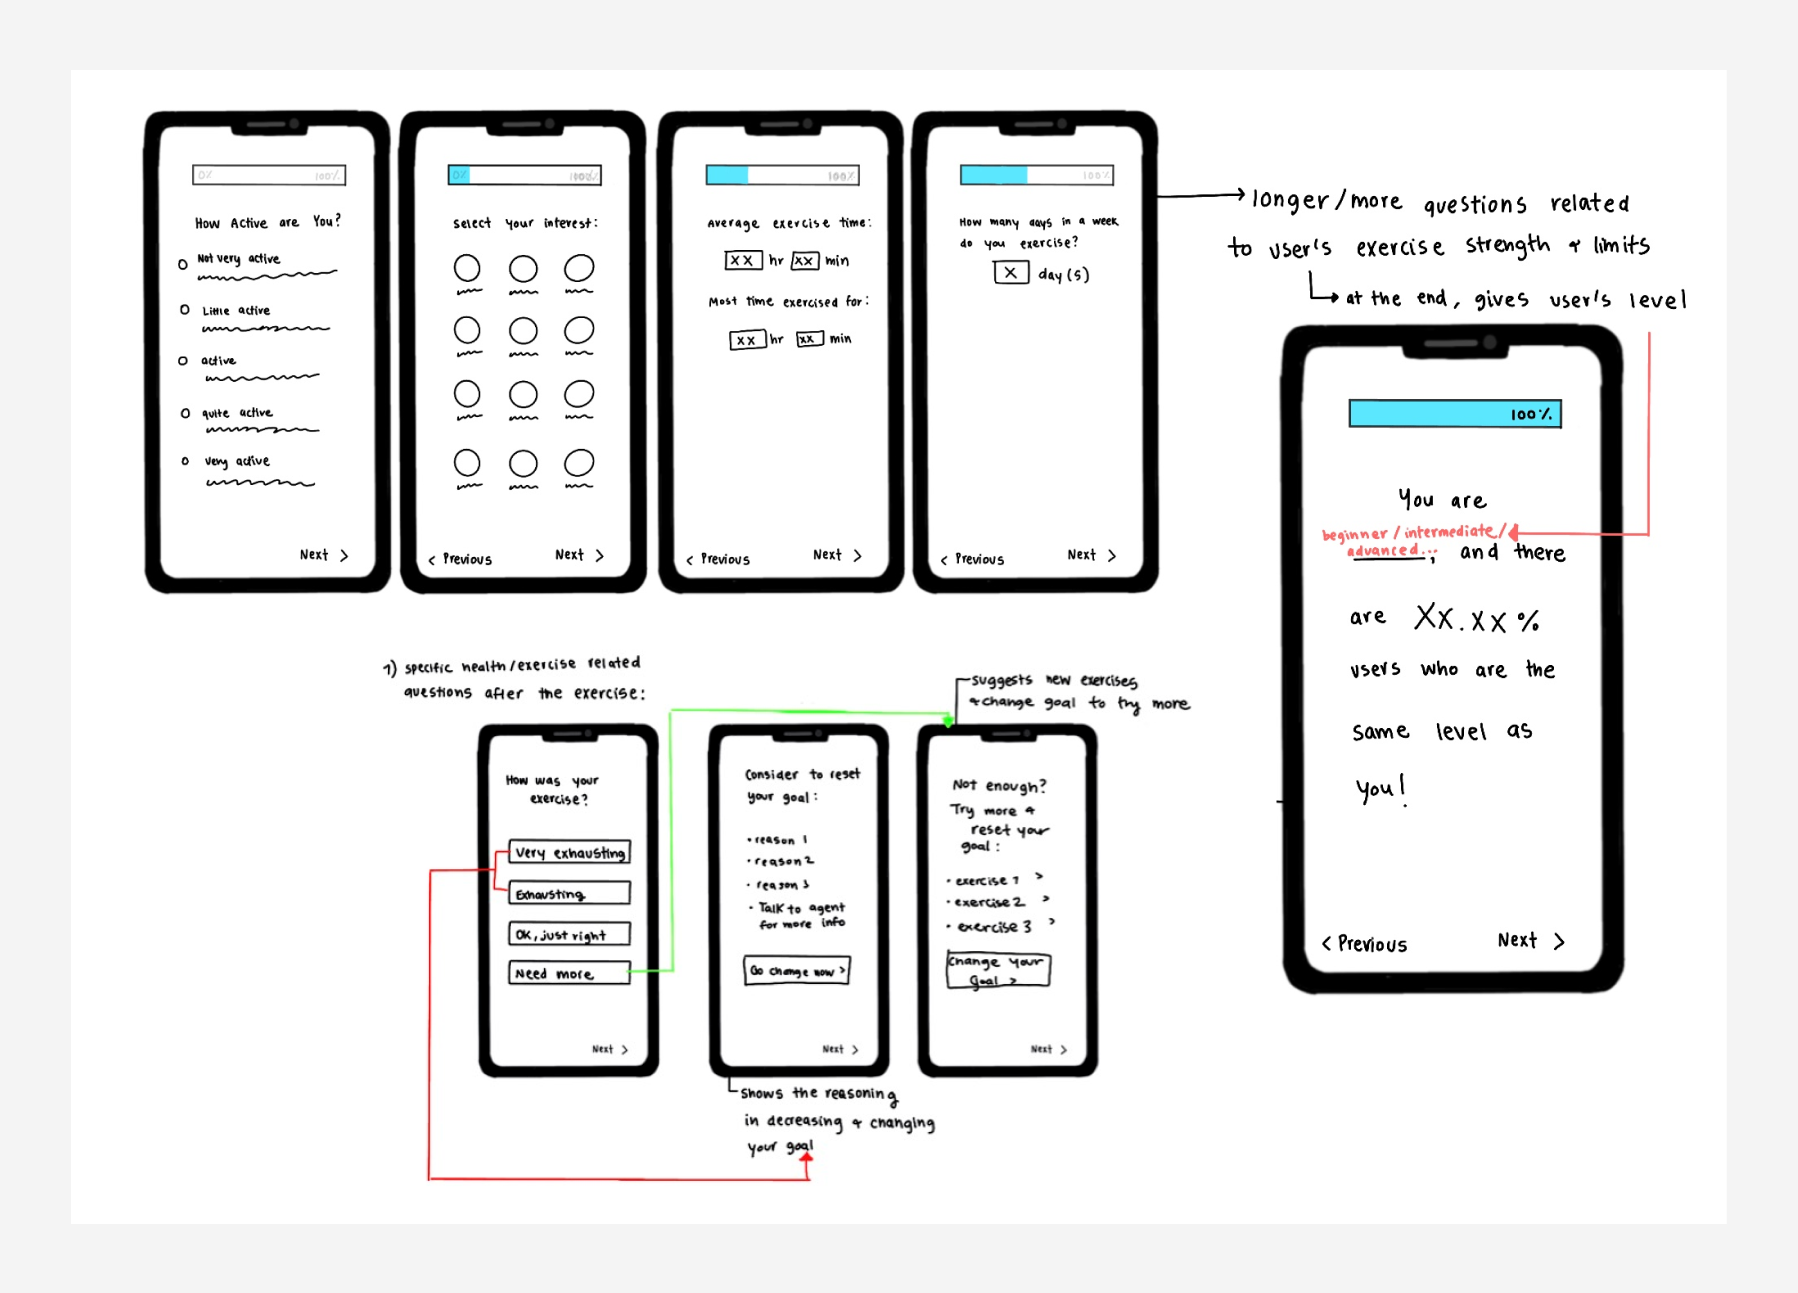 0% 100%
How Active are You?
Not very active
Little active
active
quite active
very active
Next >
0% 100%
select your interest:
< Previous Next >
100%
Average exercise time:
XX hr XX min
Most time exercised for:
XX hr XX min
< Previous Next >
100%
How many days in a week
do you exercise?
X day(s)
< Previous Next >
longer/more questions related
to user's exercise strength & limits
at the end, gives user's level
100%
You are
beginner/intermediate/
advanced...
, and there
are XX.XX%
users who are the
same level as
you!
< Previous Next >
1) specific health/exercise related
questions after the exercise:
How was your
exercise?
Very exhausting
Exhausting
OK, just right
Need more
Next >
Consider to reset
your goal:
• reason 1
• reason 2
• reason 3
• Talk to agent
for more info
Go change now >
Next >
Shows the reasoning
in decreasing & changing
your goal
suggests new exercises
& change goal to try more
Not enough?
Try more &
reset your
goal:
• exercise 1 >
• exercise 2 >
• exercise 3 >
Change your
Goal >
Next >